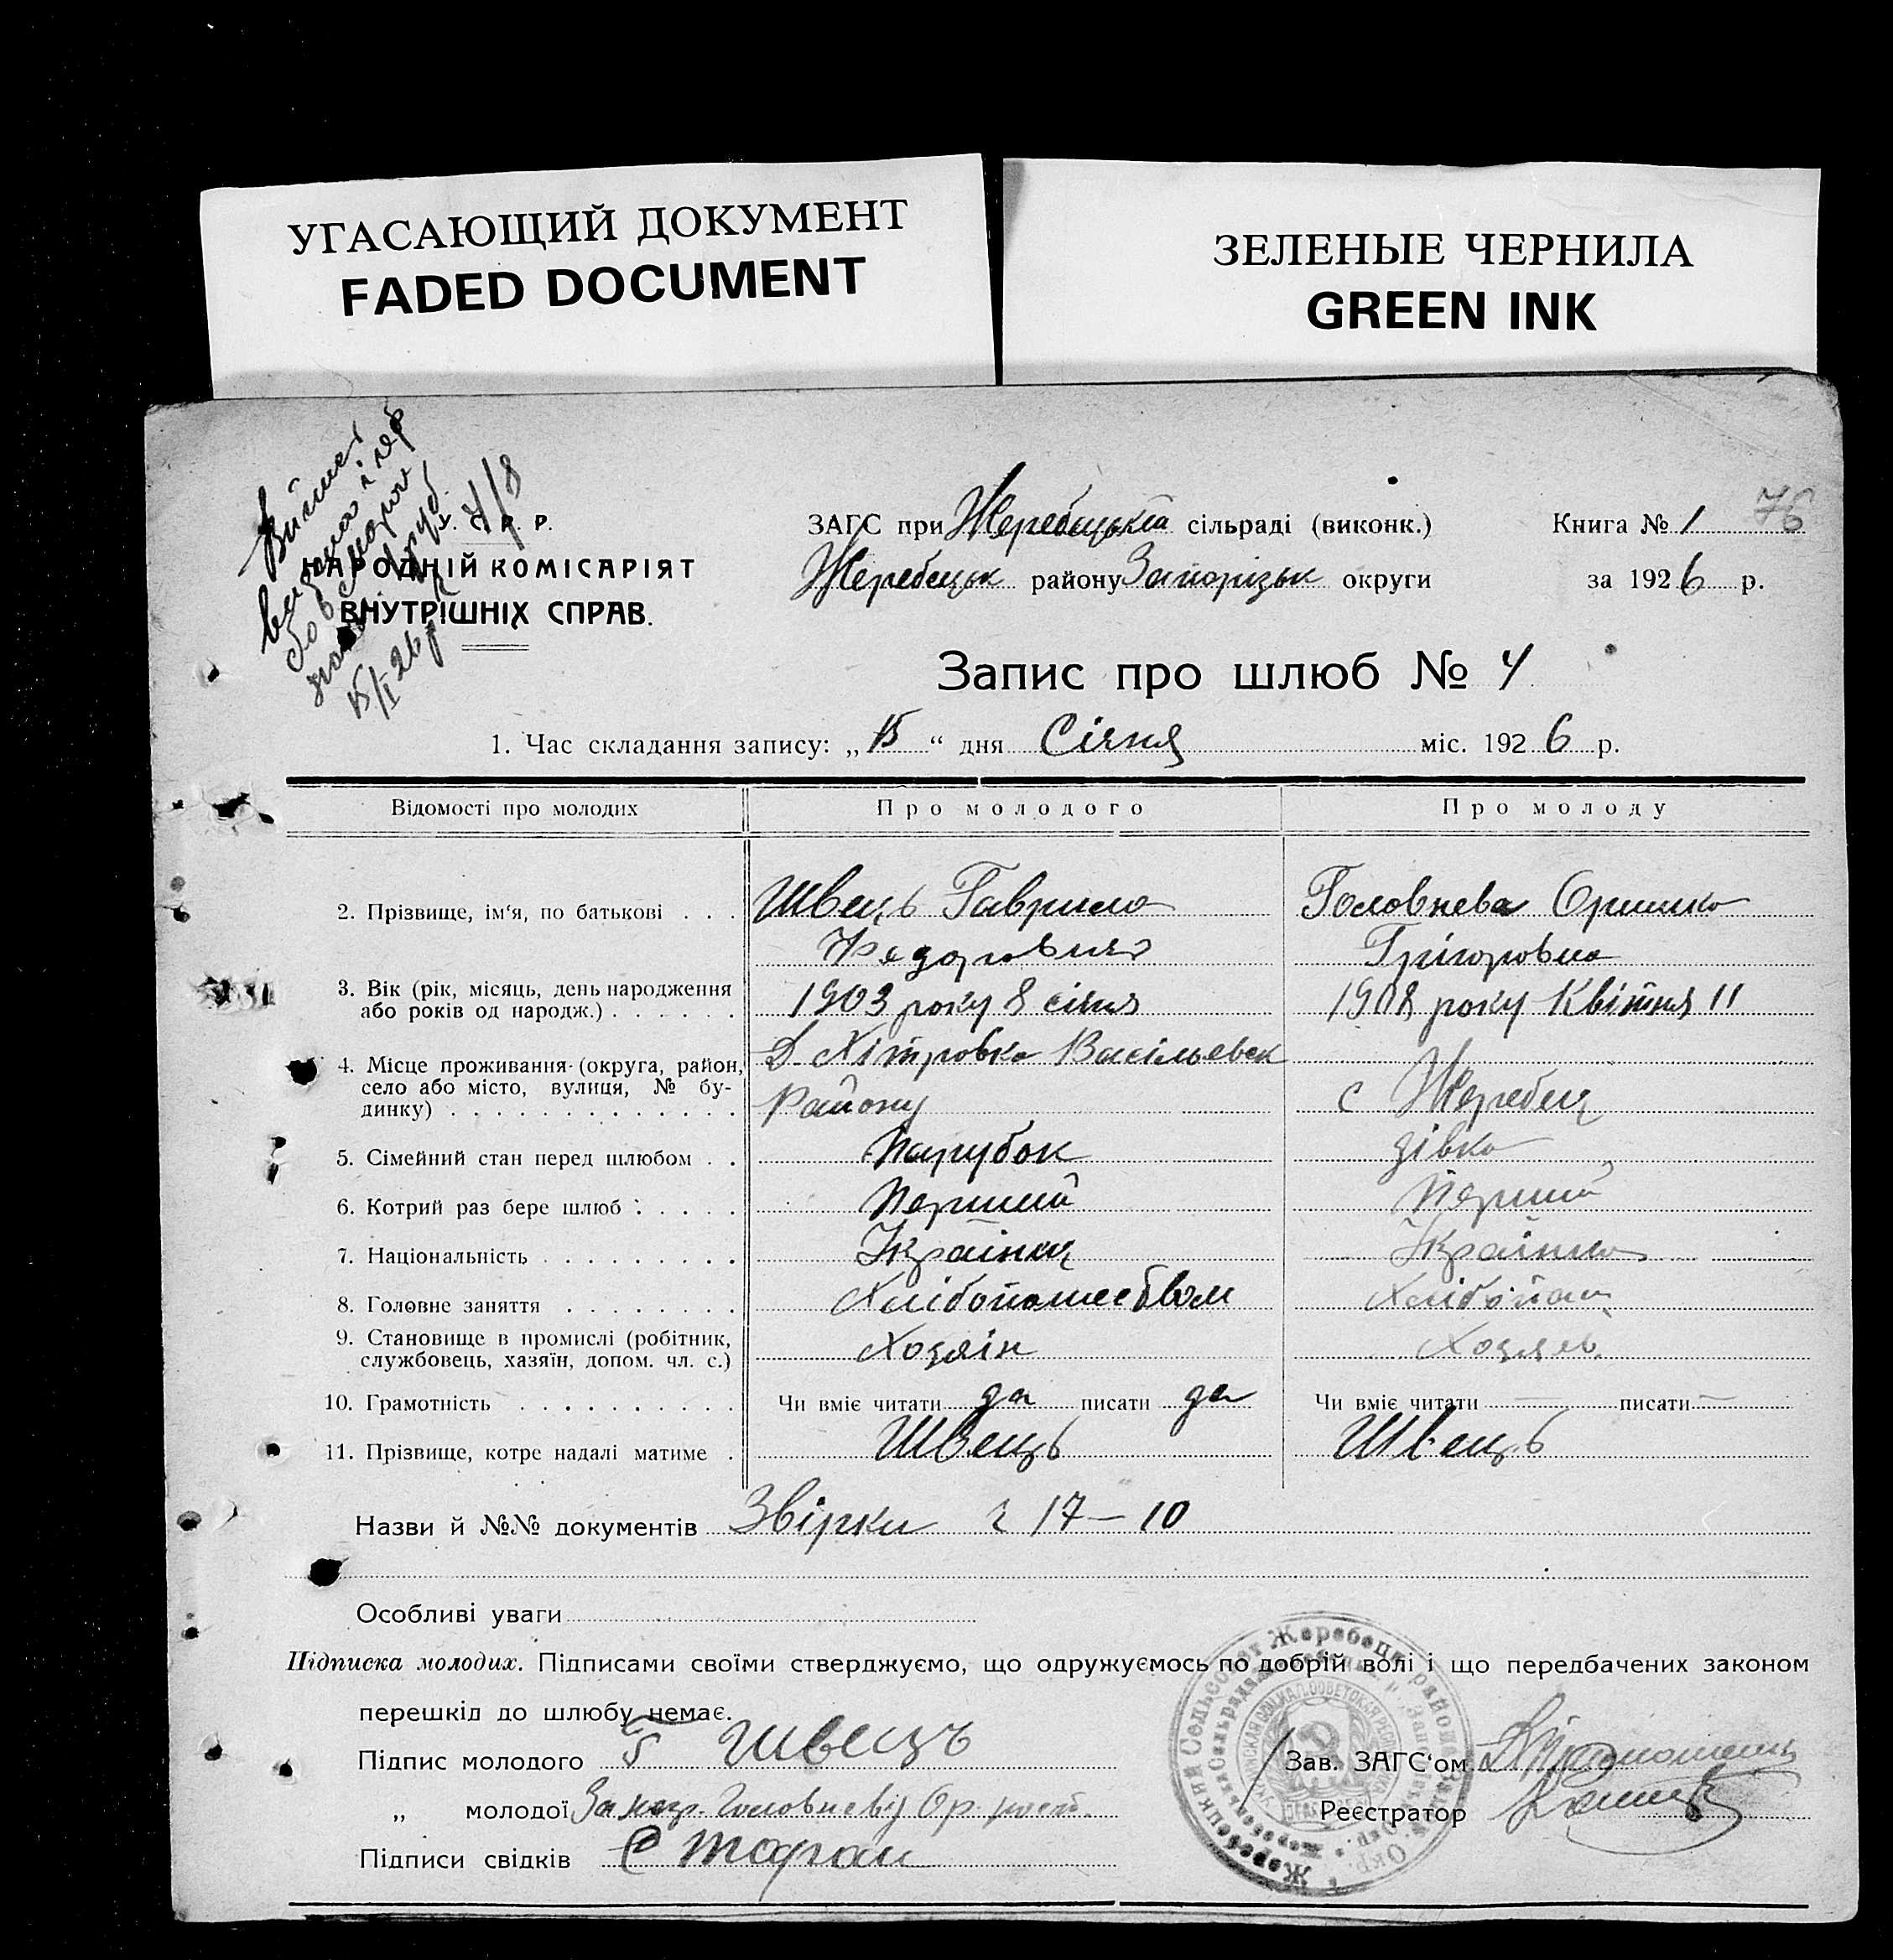 УГАСАЮЩИЙ ДОКУМЕНТ
FADED DOCUMENT
ЗЕЛЕНЫЕ ЧЕРНИЛА
GREEN INK
НАРОДНІЙ КОМІСАРІЯТ
ВНУТРІШНІХ СПРАВ.
15/I 26 р
ЗАГС при Жеребецькій сільраді (виконк.)
Жеребецьк району Запорізьк округи
Книга № 1 76
за 1926 р.
Запис про шлюб № 4
1. Час складання запису: „15“ дня Січня міс. 1926 р.
Відомості про молодих Про молодого Про молоду
2. Прізвище, ім‘я, по батькові . . . Швець Гаврило Головнева Оришка
Федорович Григоровна
3. Вік (рік, місяць, день народження 1903 року 8 січня 1908 року Квітня 11
або років од народж.) . . . . . .
4. Місце проживання (округа, район, Д. Хітровка Васільевск
село або місто, вулиця, № бу- с Жеребец
динку) . . . . . . . . . . . . . Району
5. Сімейний стан перед шлюбом . . Парубок дівка
6. Котрий раз бере шлюб . . . . . Перший Перший
7. Національність . . . . . . . . . Українец Українка
8. Головне заняття . . . . . . . . Хлібопашеством Хлібопаш
9. Становище в промислі (робітник, Хозяїн
службовець, хазяїн, допом. чл. с.)
10. Грамотність . . . . . . . . . . Чи вміє читати да писати да Чи вміє читати — писати —
11. Прізвище, котре надалі матиме . Швець Швець
Назви й №№ документів Звірки 17 — 10
Особливі уваги
Підписка молодих. Підписами своїми стверджуємо, що одружуємось по добрій волі і що передбачених законом
перешкід до шлюбу немає.
Підпис молодого Г Швець
„ молодої За негр. Головневу Ор. росп.
Підписи свідків
Зав. ЗАГС‘ом
Реєстратор